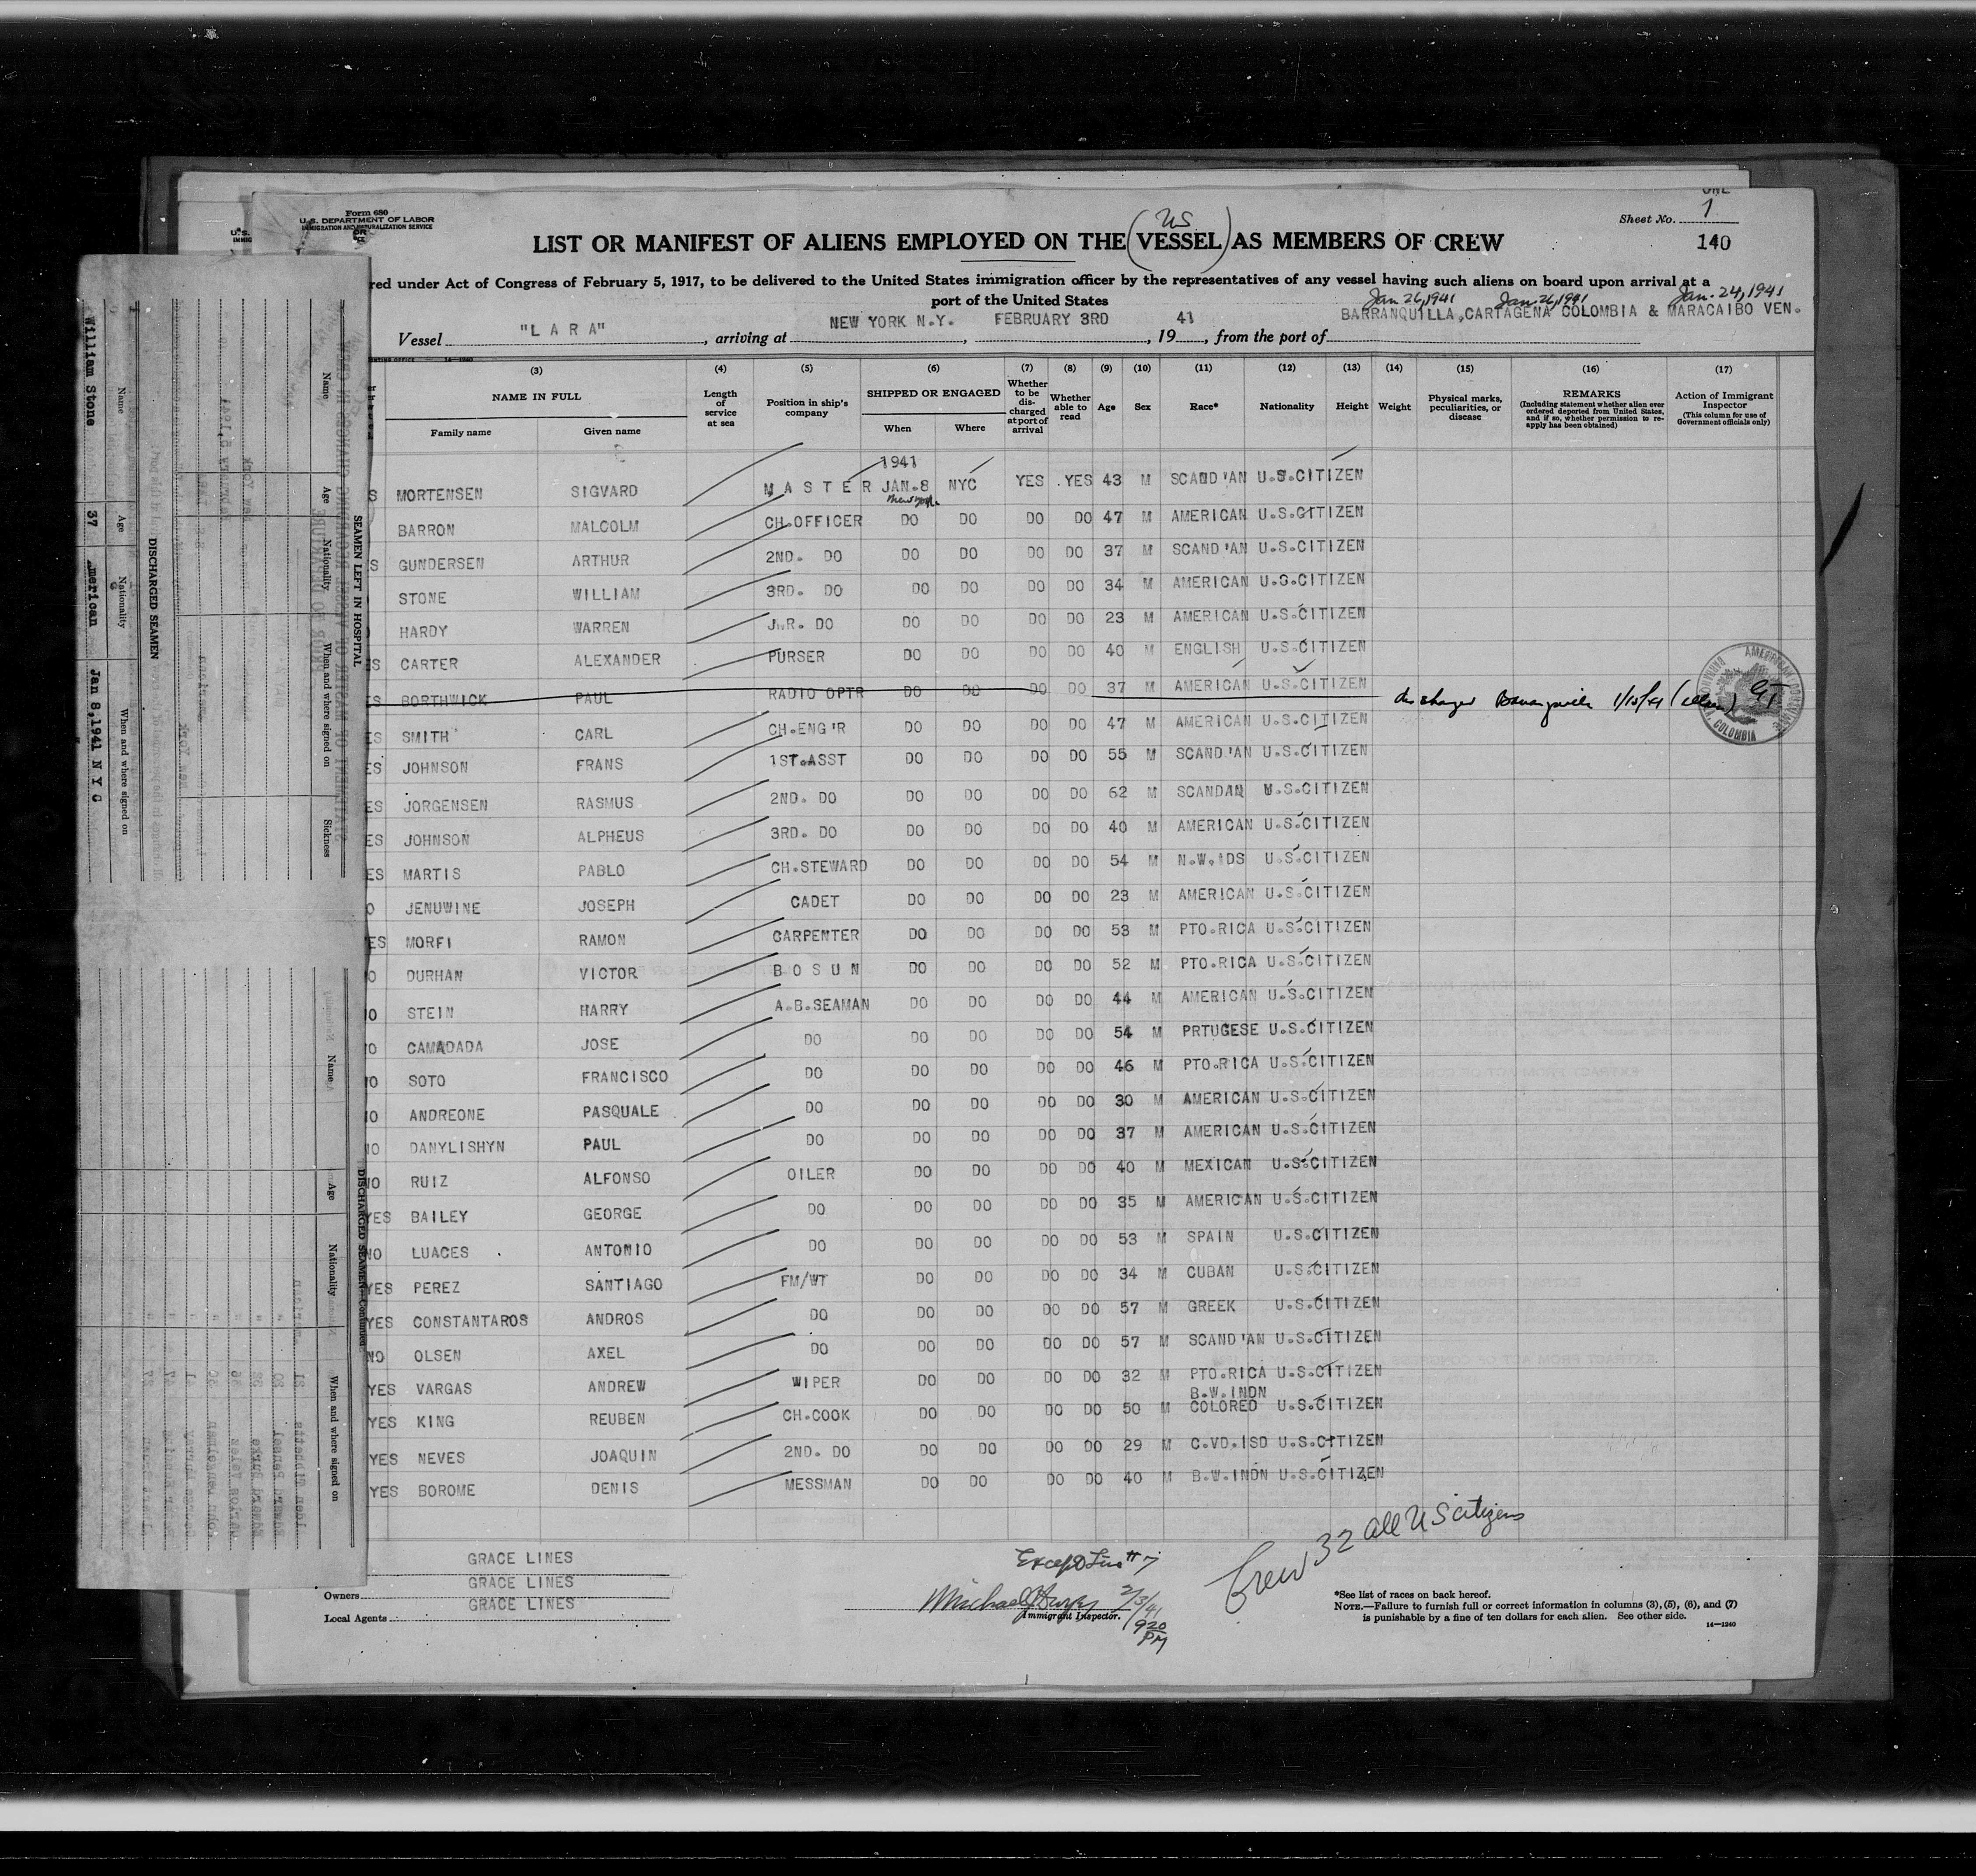 Form 680
U.S. DEPARTMENT OF LABOR
IMMIGRATION AND NATURALIZATION SERVICE
Sheet No. 1
140
LIST OR MANIFEST OF ALIENS EMPLOYED ON THE (VESSEL) AS MEMBERS OF CREW
US
red under Act of Congress of February 5, 1917, to be delivered to the United States immigration officer by the representatives of any vessel having such aliens on board upon arrival at a
port of the United States
Jan 26, 1941 Jan. 26, 1941 Jan. 24, 1941
Vessel "L A R A", arriving at NEW YORK N.Y. FEBRUARY 3RD, 19 41, from the port of BARRANQUILLA, CARTAGENA COLOMBIA & MARACAIBO VEN.
(3) (4) (5) (6) (7) (8) (9) (10) (11) (12) (13) (14) (15) (16) (17)
NAME IN FULL
Family name Given name
Length of service at sea
Position in ship's company
SHIPPED OR ENGAGED
When Where
Whether to be discharged at port of arrival
Whether able to read
Age Sex Race* Nationality Height Weight
Physical marks, peculiarities, or disease
REMARKS
(Including statement whether alien ever ordered deported from United States, and if so, whether permission to reapply has been obtained)
Action of Immigrant Inspector
(This column for use of Government officials only)
1941
S MORTENSEN SIGVARD M A S T E R JAN.8 NYC YES YES 43 M SCAND'AN U.S.CITIZEN
New York
BARRON MALCOLM CH.OFFICER DO DO DO DO 47 M AMERICAN U.S.CITIZEN
S GUNDERSEN ARTHUR 2ND. DO DO DO DO DO 37 M SCAND'AN U.S.CITIZEN
STONE WILLIAM 3RD. DO DO DO DO DO 34 M AMERICAN U.S.CITIZEN
HARDY WARREN J.R. DO DO DO DO DO 23 M AMERICAN U.S.CITIZEN
S CARTER ALEXANDER PURSER DO DO DO DO 40 M ENGLISH U.S.CITIZEN
ES BORTHWICK PAUL RADIO OPTR DO DO DO DO 37 M AMERICAN U.S.CITIZEN
ES SMITH CARL CH.ENG'R DO DO DO DO 47 M AMERICAN U.S.CITIZEN
ES JOHNSON FRANS 1ST.ASST DO DO DO DO 55 M SCAND'AN U.S.CITIZEN
ES JORGENSEN RASMUS 2ND. DO DO DO DO DO 62 M SCANDAN U.S.CITIZEN
ES JOHNSON ALPHEUS 3RD. DO DO DO DO DO 40 M AMERICAN U.S.CITIZEN
ES MARTIS PABLO CH.STEWARD DO DO DO DO 54 M N.W.IDS U.S.CITIZEN
O JENUWINE JOSEPH CADET DO DO DO DO 23 M AMERICAN U.S.CITIZEN
ES MORFI RAMON CARPENTER DO DO DO DO 53 M PTO.RICA U.S.CITIZEN
O DURHAN VICTOR B O S U N DO DO DO DO 52 M PTO.RICA U.S.CITIZEN
O STEIN HARRY A.B.SEAMAN DO DO DO DO 44 M AMERICAN U.S.CITIZEN
O CAMADADA JOSE DO DO DO DO DO 54 M PRTUGESE U.S.CITIZEN
O SOTO FRANCISCO DO DO DO DO DO 46 M PTO.RICA U.S.CITIZEN
O ANDREONE PASQUALE DO DO DO DO DO 30 M AMERICAN U.S.CITIZEN
NO DANYLISHYN PAUL DO DO DO DO DO 37 M AMERICAN U.S.CITIZEN
NO RUIZ ALFONSO OILER DO DO DO DO 40 M MEXICAN U.S.CITIZEN
YES BAILEY GEORGE DO DO DO DO DO 35 M AMERICAN U.S.CITIZEN
NO LUACES ANTONIO DO DO DO DO DO 53 M SPAIN U.S.CITIZEN
YES PEREZ SANTIAGO FM/WT DO DO DO DO 34 M CUBAN U.S.CITIZEN
YES CONSTANTAROS ANDROS DO DO DO DO DO 57 M GREEK U.S.CITIZEN
NO OLSEN AXEL DO DO DO DO DO 57 M SCAND'AN U.S.CITIZEN
YES VARGAS ANDREW WIPER DO DO DO DO 32 M PTO.RICA U.S.CITIZEN
B.W.INDN
YES KING REUBEN CH.COOK DO DO DO DO 50 M COLORED U.S.CITIZEN
YES NEVES JOAQUIN 2ND. DO DO DO DO DO 29 M C.VD.ISD U.S.CITIZEN
YES BOROME DENIS MESSMAN DO DO DO DO 40 M B.W.INDN U.S.CITIZEN
Crew 32 all US citizens
Except Line #7
GRACE LINES
Owners GRACE LINES
Local Agents GRACE LINES
2/3/41
Immigrant Inspector.
9 20 PM
*See list of races on back hereof.
NOTE.—Failure to furnish full or correct information in columns (3), (5), (6), and (7)
is punishable by a fine of ten dollars for each alien. See other side.
14—1240
SEAMEN LEFT IN HOSPITAL
Name Age Nationality When and where signed on Sickness
DISCHARGED SEAMEN
Name Age Nationality When and where signed on
William Stone 37 American Jan 8, 1941 N Y C
DISCHARGED SEAMEN—Continued
Name Age Nationality When and where signed on